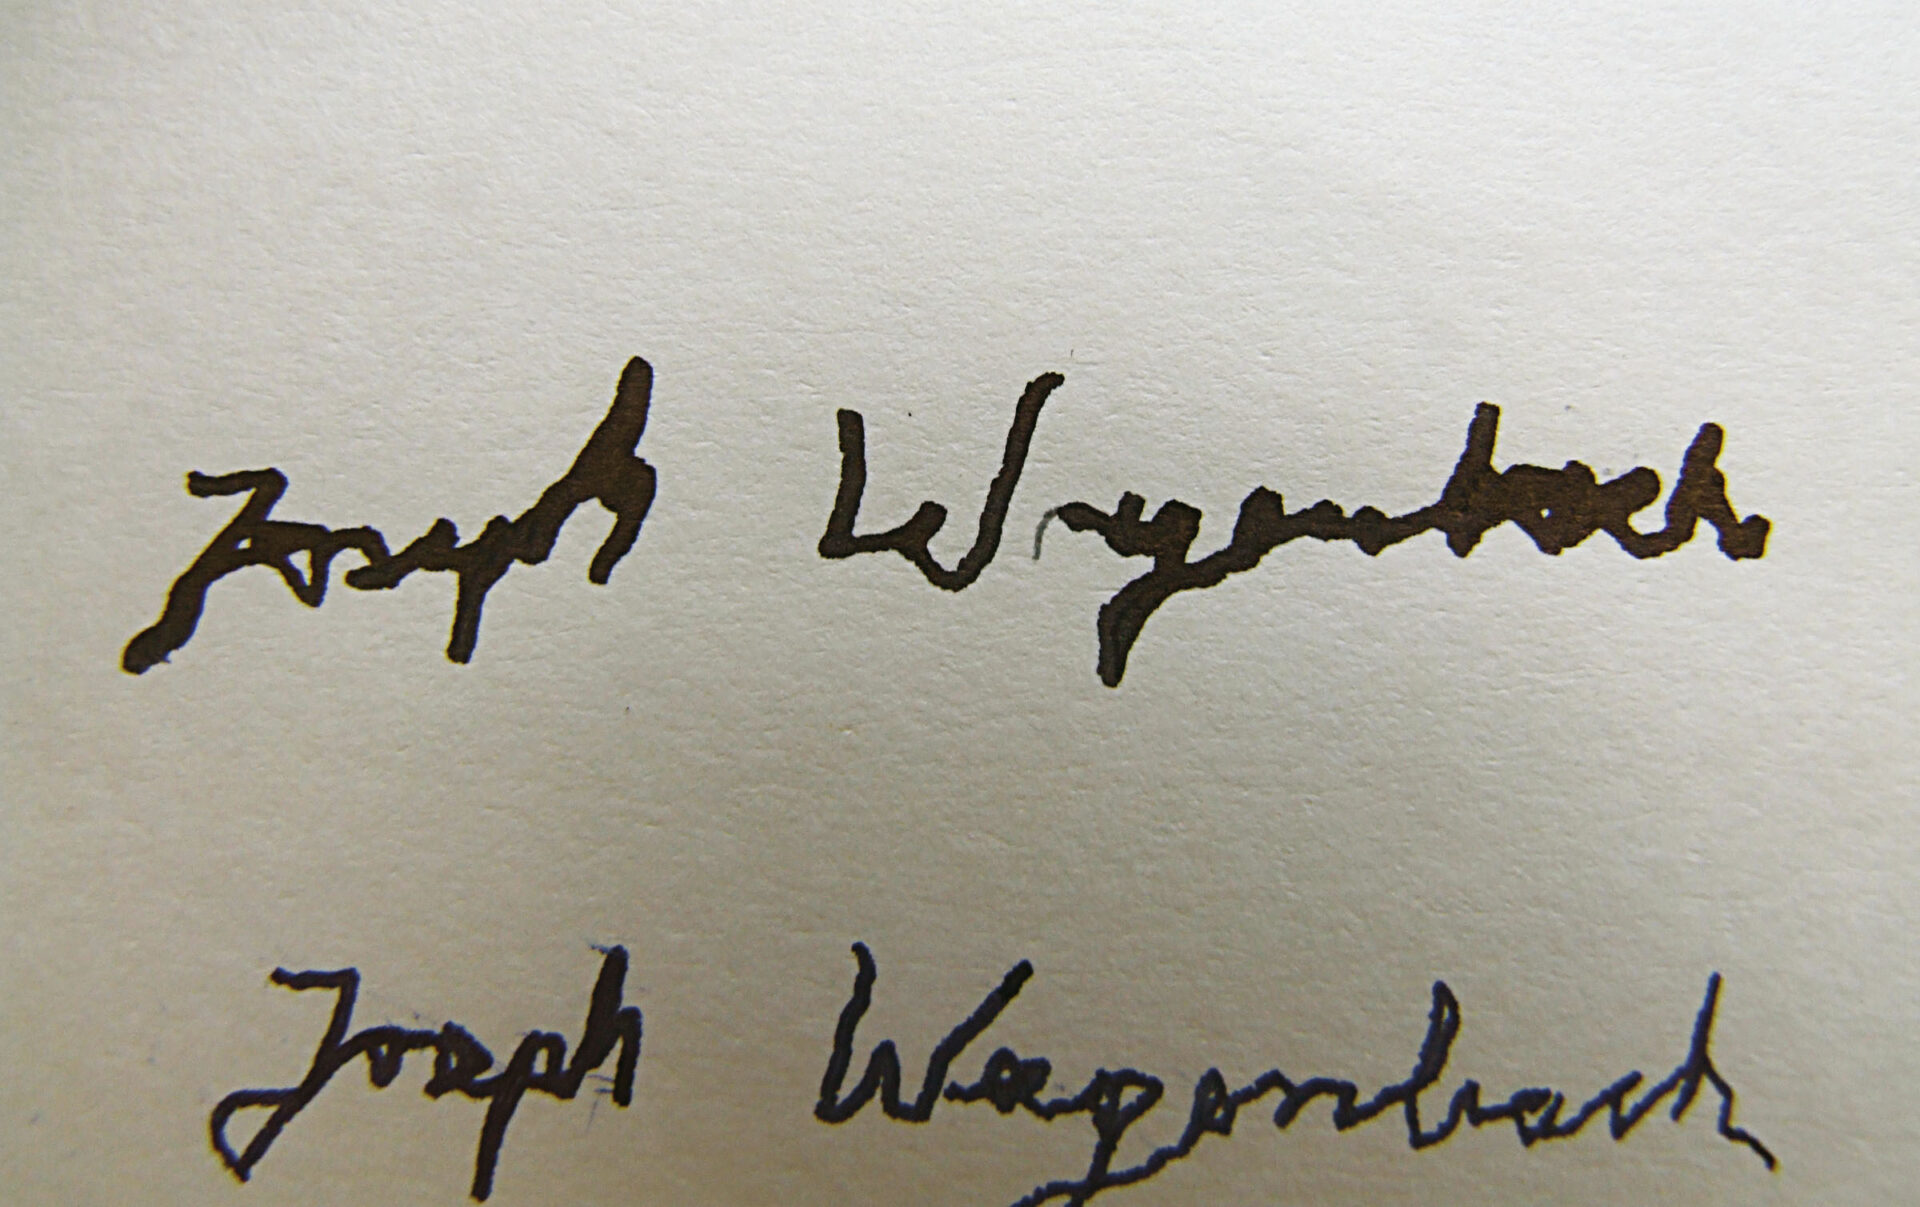 Joseph Wagenbach
Joseph Wagenbach